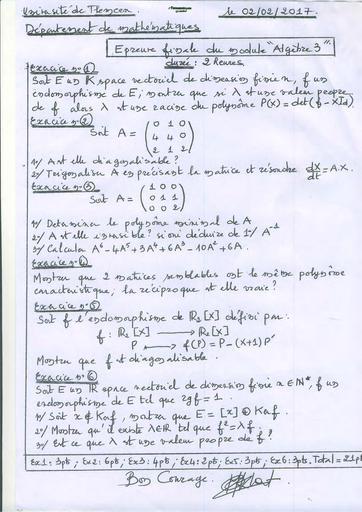 Université de Tlemcen le 02/02/2017.
Département de mathématiques
Epreuve finale du module "Algèbre 3"
durée : 2 heures.
Exercice n° 1
Soit E un K espace vectoriel de dimension finie n, f un
endomorphisme de E, montrer que si λ est une valeur propre
de f alors λ est une racine du polynôme P(X) = det(f - XId).
Exercice n° 2
Soit A = ( 0 1 0
4 4 0
2 1 2 )
1°/ A est elle diagonalisable ?
2°/ Trigonaliser A en précisant la matrice et résoudre dX/dt = A.X.
Exercice n° 3
Soit A = ( 1 0 0
0 1 1
0 0 2 )
1°/ Déterminer le polynôme minimal de A
2°/ A est elle inversible ? si oui déduire de 1°/ A⁻¹
3°/ Calculer A⁶ - 4A⁵ + 3A⁴ + 6A³ - 10A² + 6A.
Exercice n° 4
Montrer que 2 matrices semblables ont le même polynôme
caractéristique, la réciproque est elle vraie ?
Exercice n° 5
Soit f l'endomorphisme de ℝ₂[X] défini par :
f : ℝ₂[X] → ℝ₂[X]
P → f(P) = P - (X+1)P'
Montrer que f est diagonalisable.
Exercice n° 6
Soit E un ℝ espace vectoriel de dimension finie n ∈ ℕ*, f un
endomorphisme de E tel que rgf = 1.
1°/ Soit x ∉ Kerf, montrer que E = [x] ⊕ Kerf.
2°/ Montrer qu'il existe λ∈ℝ tel que f² = λf.
3°/ Est ce que λ est une valeur propre de f ?
Ex1 : 3pts, Ex2 : 6pts, Ex3 : 4pts, Ex4 : 2pts, Ex5 : 3pts, Ex6 : 3pts, Total = 21pts
Bon Courage.